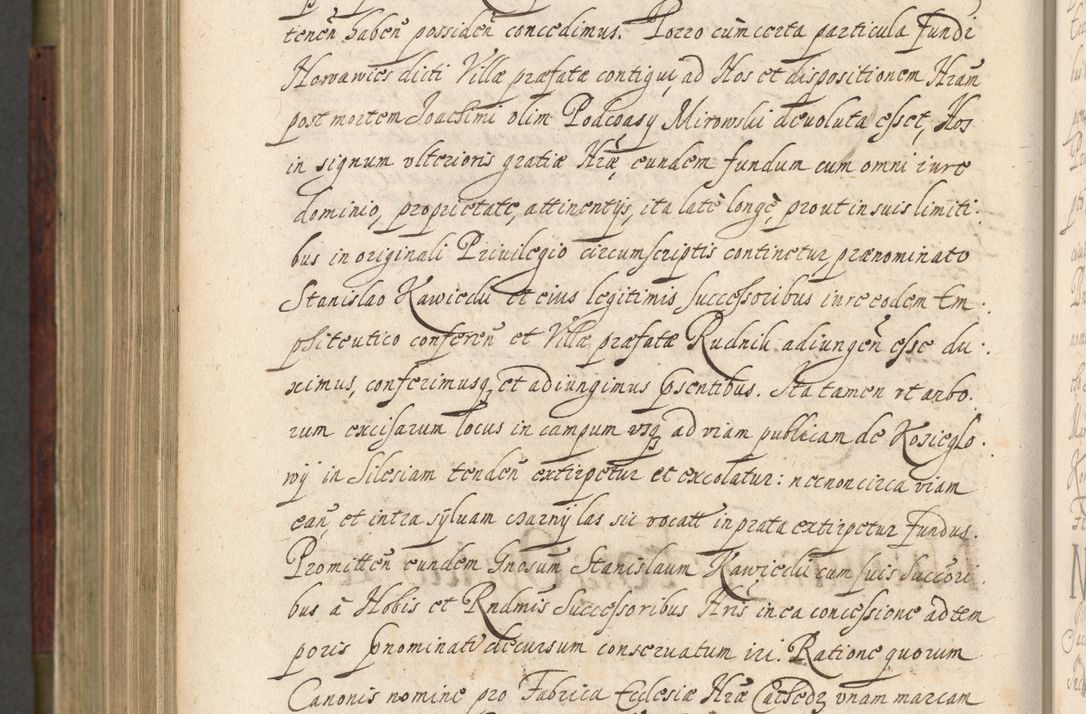 tenen̄ haben̄ possiden̄ concedimus. Porro cùm certa particula fundi
Horvawies dicti Villæ præfatæ contiguȩ ad Nos et dispositionem Nrām
post mortem Joachimi olim Podczasy Mirowski deuoluta esset, Nos
in signum vlterioris gratiæ Nræ, eundem fundum cum omni iure
dominio, proprietate, attinentijs, ita latè longè, prout in suis limiti.
bus in originali Priuilegio circumscriptis continetur, prænominato
Stanislao Kawiecki et eius legitimis successoribus iure eodem Em.
phiteutico conferen̄ et Villæ præfatæ Rudnik adiungen̄ esse du.
ximus, conferimusq, et adiungimus p̄sentibus. Ita tamen vt arbo.
rum excisarum locus in campum vsq ad viam publicam de Kosieglo.
wy in Silesiam tenden̄ extirpetur et excolatur: necnon circa viam
ean̄ et intra syluam czarny las sic vocatt in prata extirpetur fundus.
Promitten̄ eundem Gnosum Stanislaum Kawiecki cum suis Succōri.
bus à Nobis et Rndmis Successoribus Nris in ea concessione ad tem
poris p̄nominati decursum conseruatum iri. Ratione quorum
Canonis nomine pro Fabrica Ecclesiæ Nræ Cathedr vnam marcam